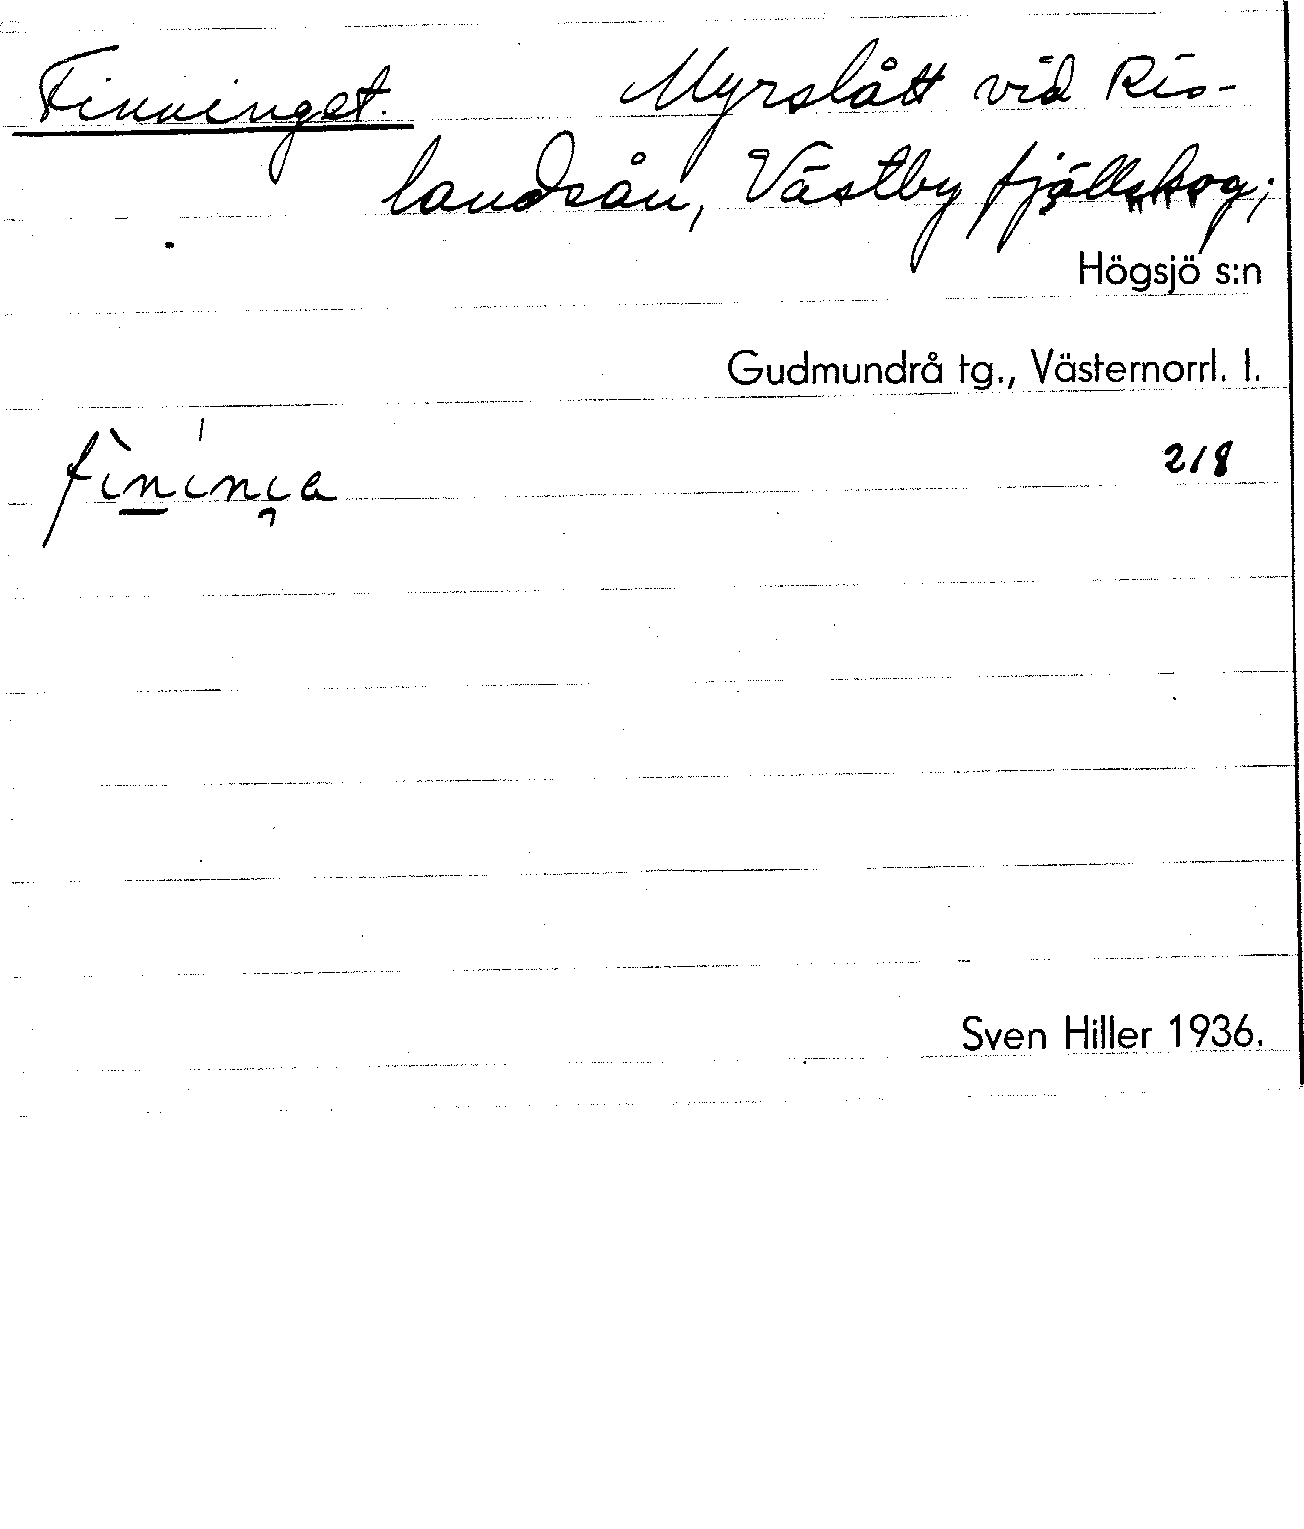 Finninget. Myrslått vid Ris-
landsån, Västby fjällskog;
Högsjö s:n
Gudmundrå tg., Västernorrl. l.
218
Sven Hiller 1936.